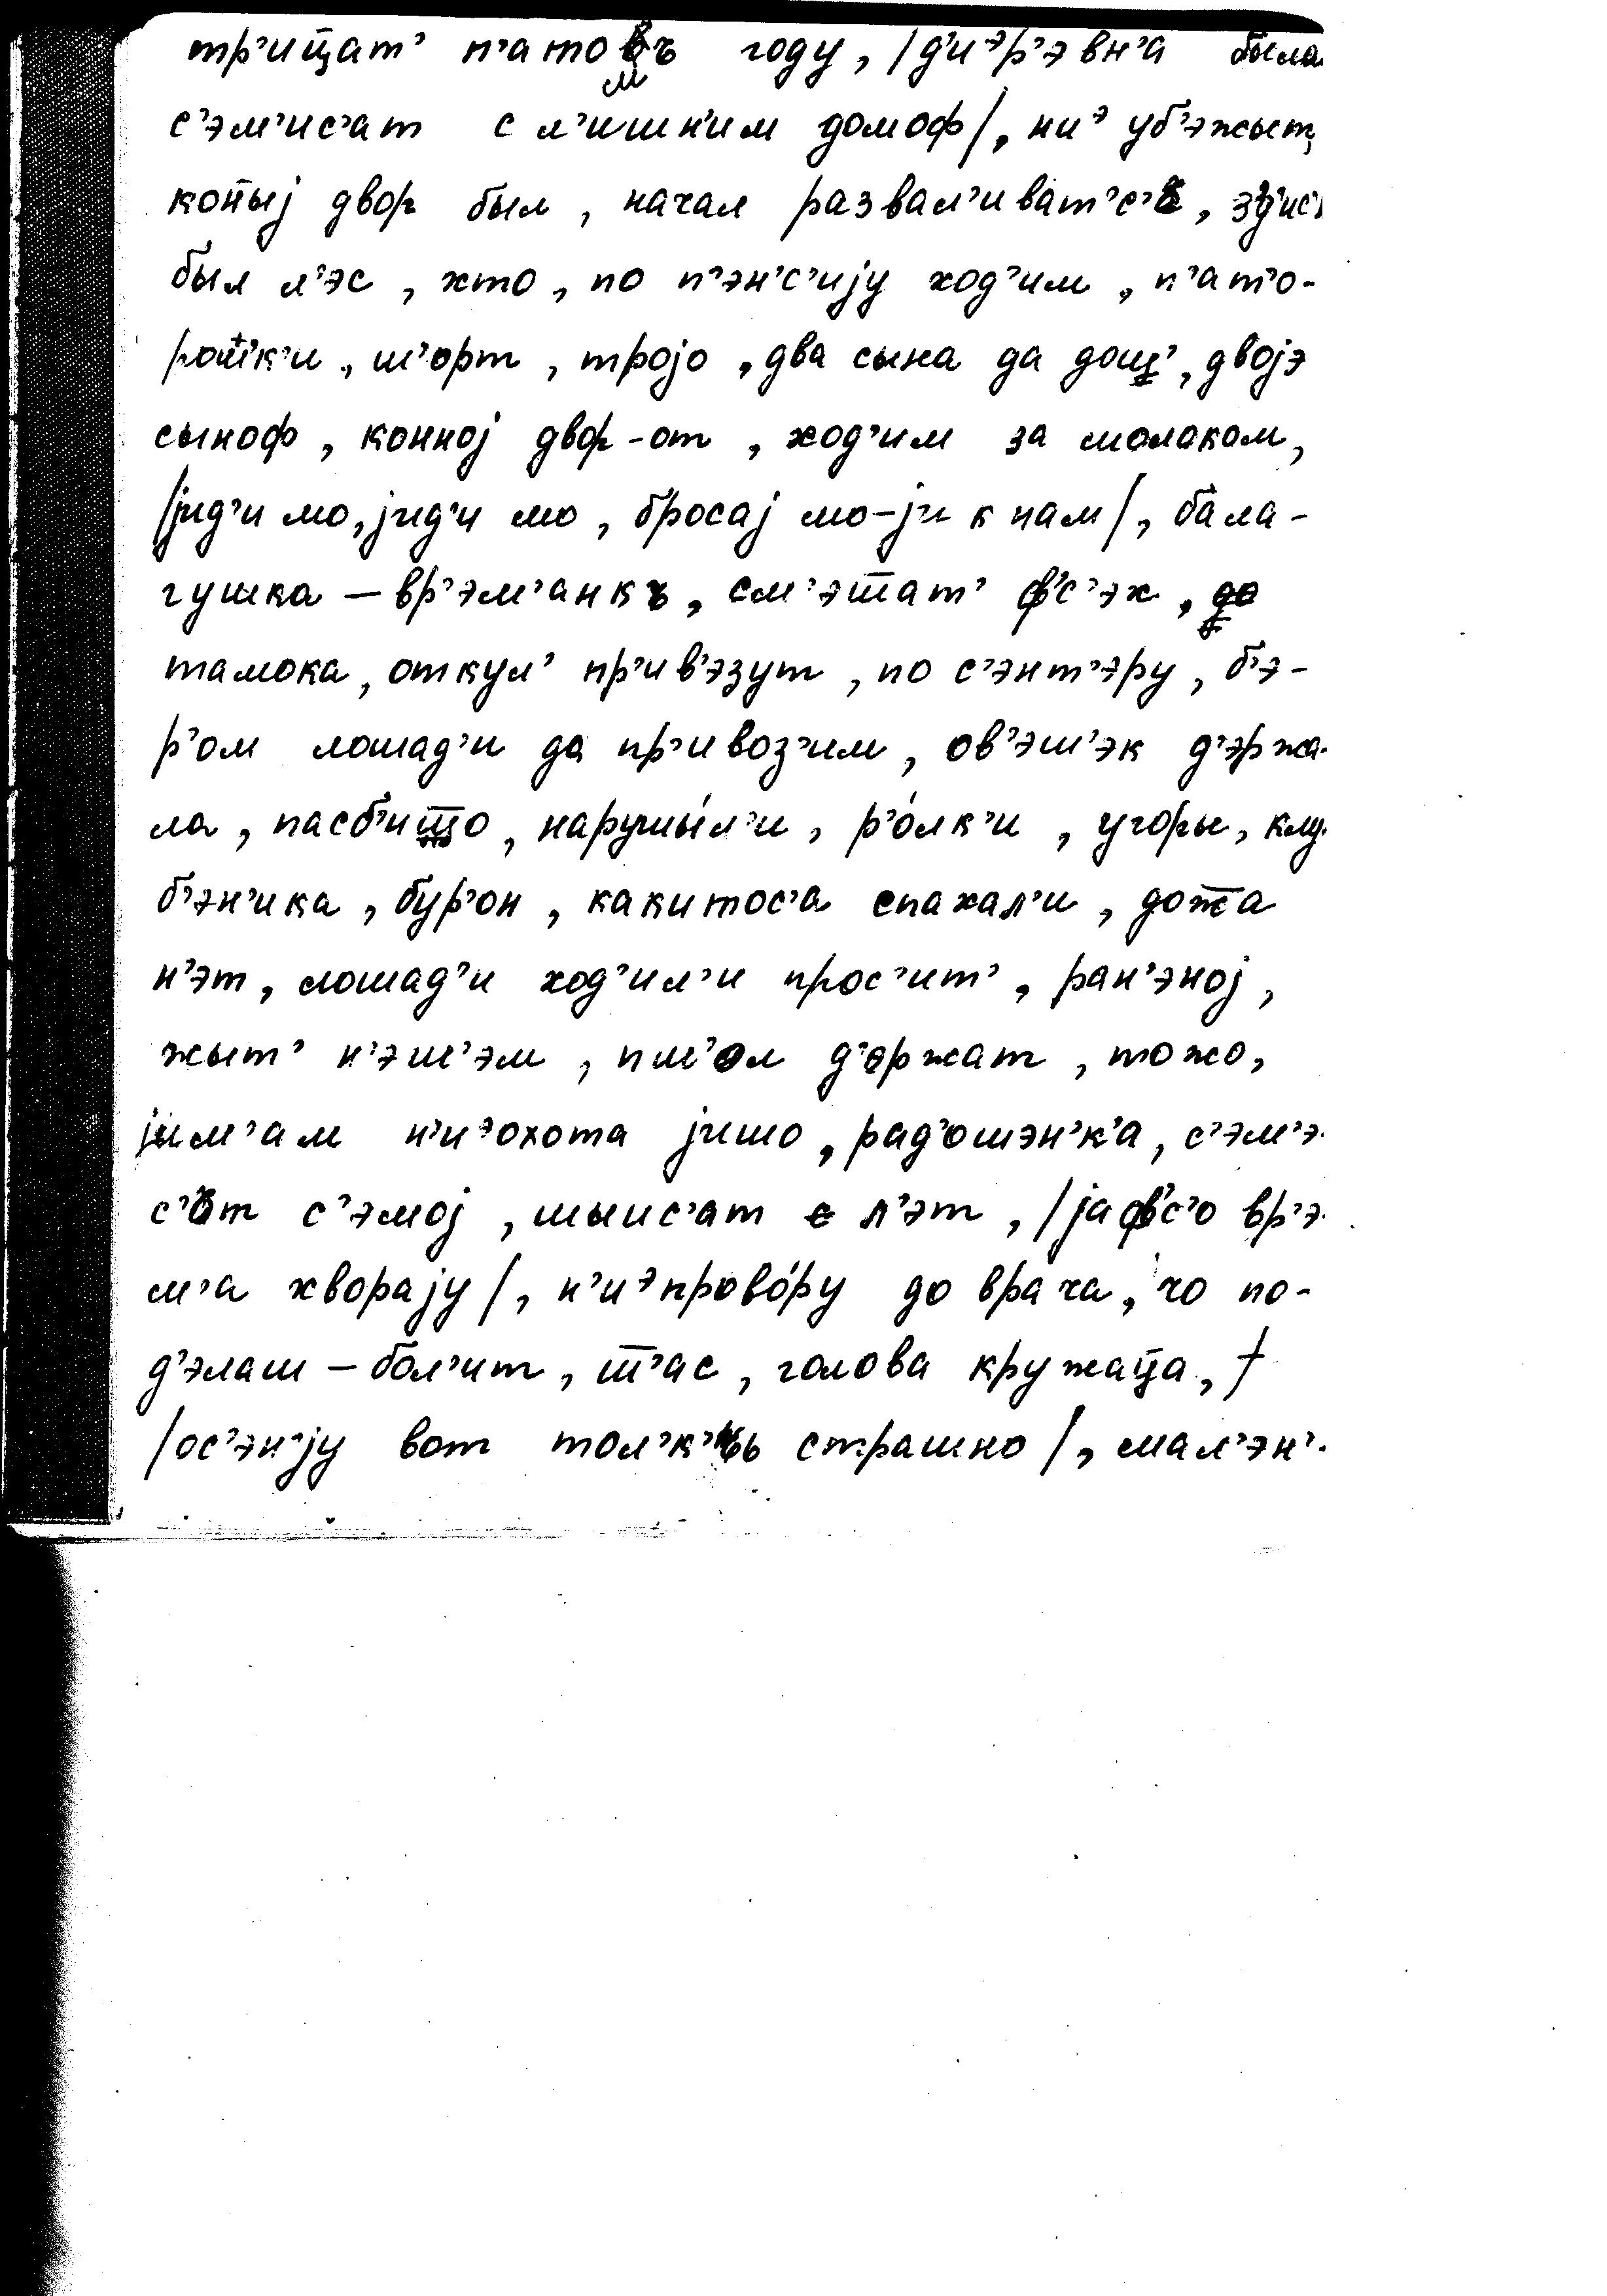 тр'ица̄т' п'атомъ году, /д'иэр'эвн'а была
с'эм'ис'ат с л'ишн'им домоф/, ниэ уб'эжыт,
кон̄ыј двор был, начал развал'иват'с'ь, з'д'ис'
был л'эс, хто, по п'эн'с'ију ход'им, п'ат'о-
рошк'и, ш'орт, тројо, два сына да дощ', двојэ
сыноф, конној двор-от, ход'им за молоком,
/јид'и мо, јид'и мо, бросај мо-ји к нам/, бала-
гушка – вр'эм'анкъ, см'эшат' ф'с'эх,
тамока, откул' пр'ив'эзут, по с'энт'эру, б'э-
р'ом лошад'и да пр'ивоз'им, ов'эш'эк д'эржа-
ла, пасб'ишо, нарушы́л'и, р'о́лк'и, угоры, клу-
б'эн'ика, бур'он, какитос'а спахал'и, дож̄а
н'эт, лошад'и ход'ил'и прос'ит', ран'эној,
жыт' н'эш'эм, пш'ол д'эржат, тожо,
јим'ам н'иэохота јишо, рад'ошэн'к'а, с'эм'э-
с'от с'эмој, шыис'ат л'эт, /ја ф'с'о вр'э-
м'а хворају/, н'иэпрово́ру до врача, чо по-
д'элаш – бол'ит, ш̄'ас, голова кружац̄а,
/ос'эн'ју вот тол'к'ь страшно/, мал'эн'-